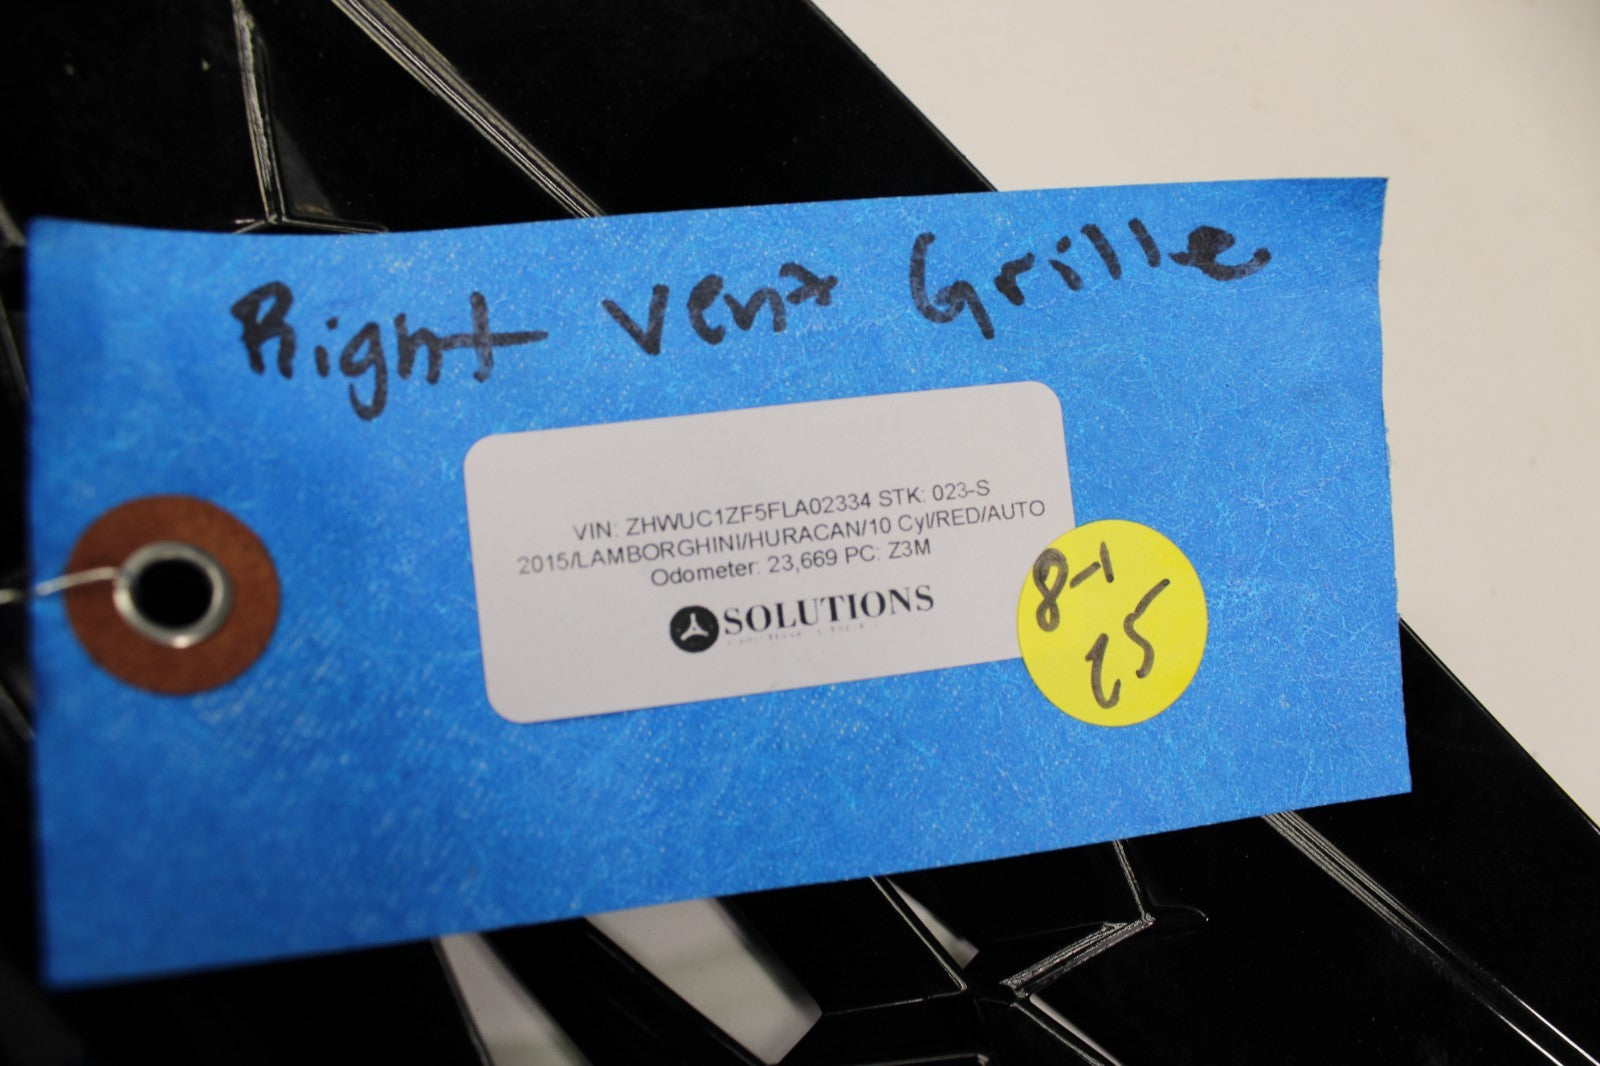 Right Vent Grille
VIN: ZHWUC1ZF5FLA02334 STK: 023-S
2015/LAMBORGHINI/HURACAN/10 Cyl/RED/AUTO
Odometer: 23,669 PC: Z3M
SOLUTIONS
8-1
25